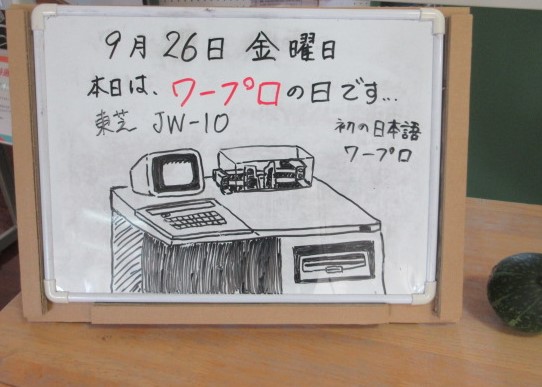 9月26日 金曜日
本日は、ワープロの日です...
東芝 JW-10
初の日本語
ワープロ